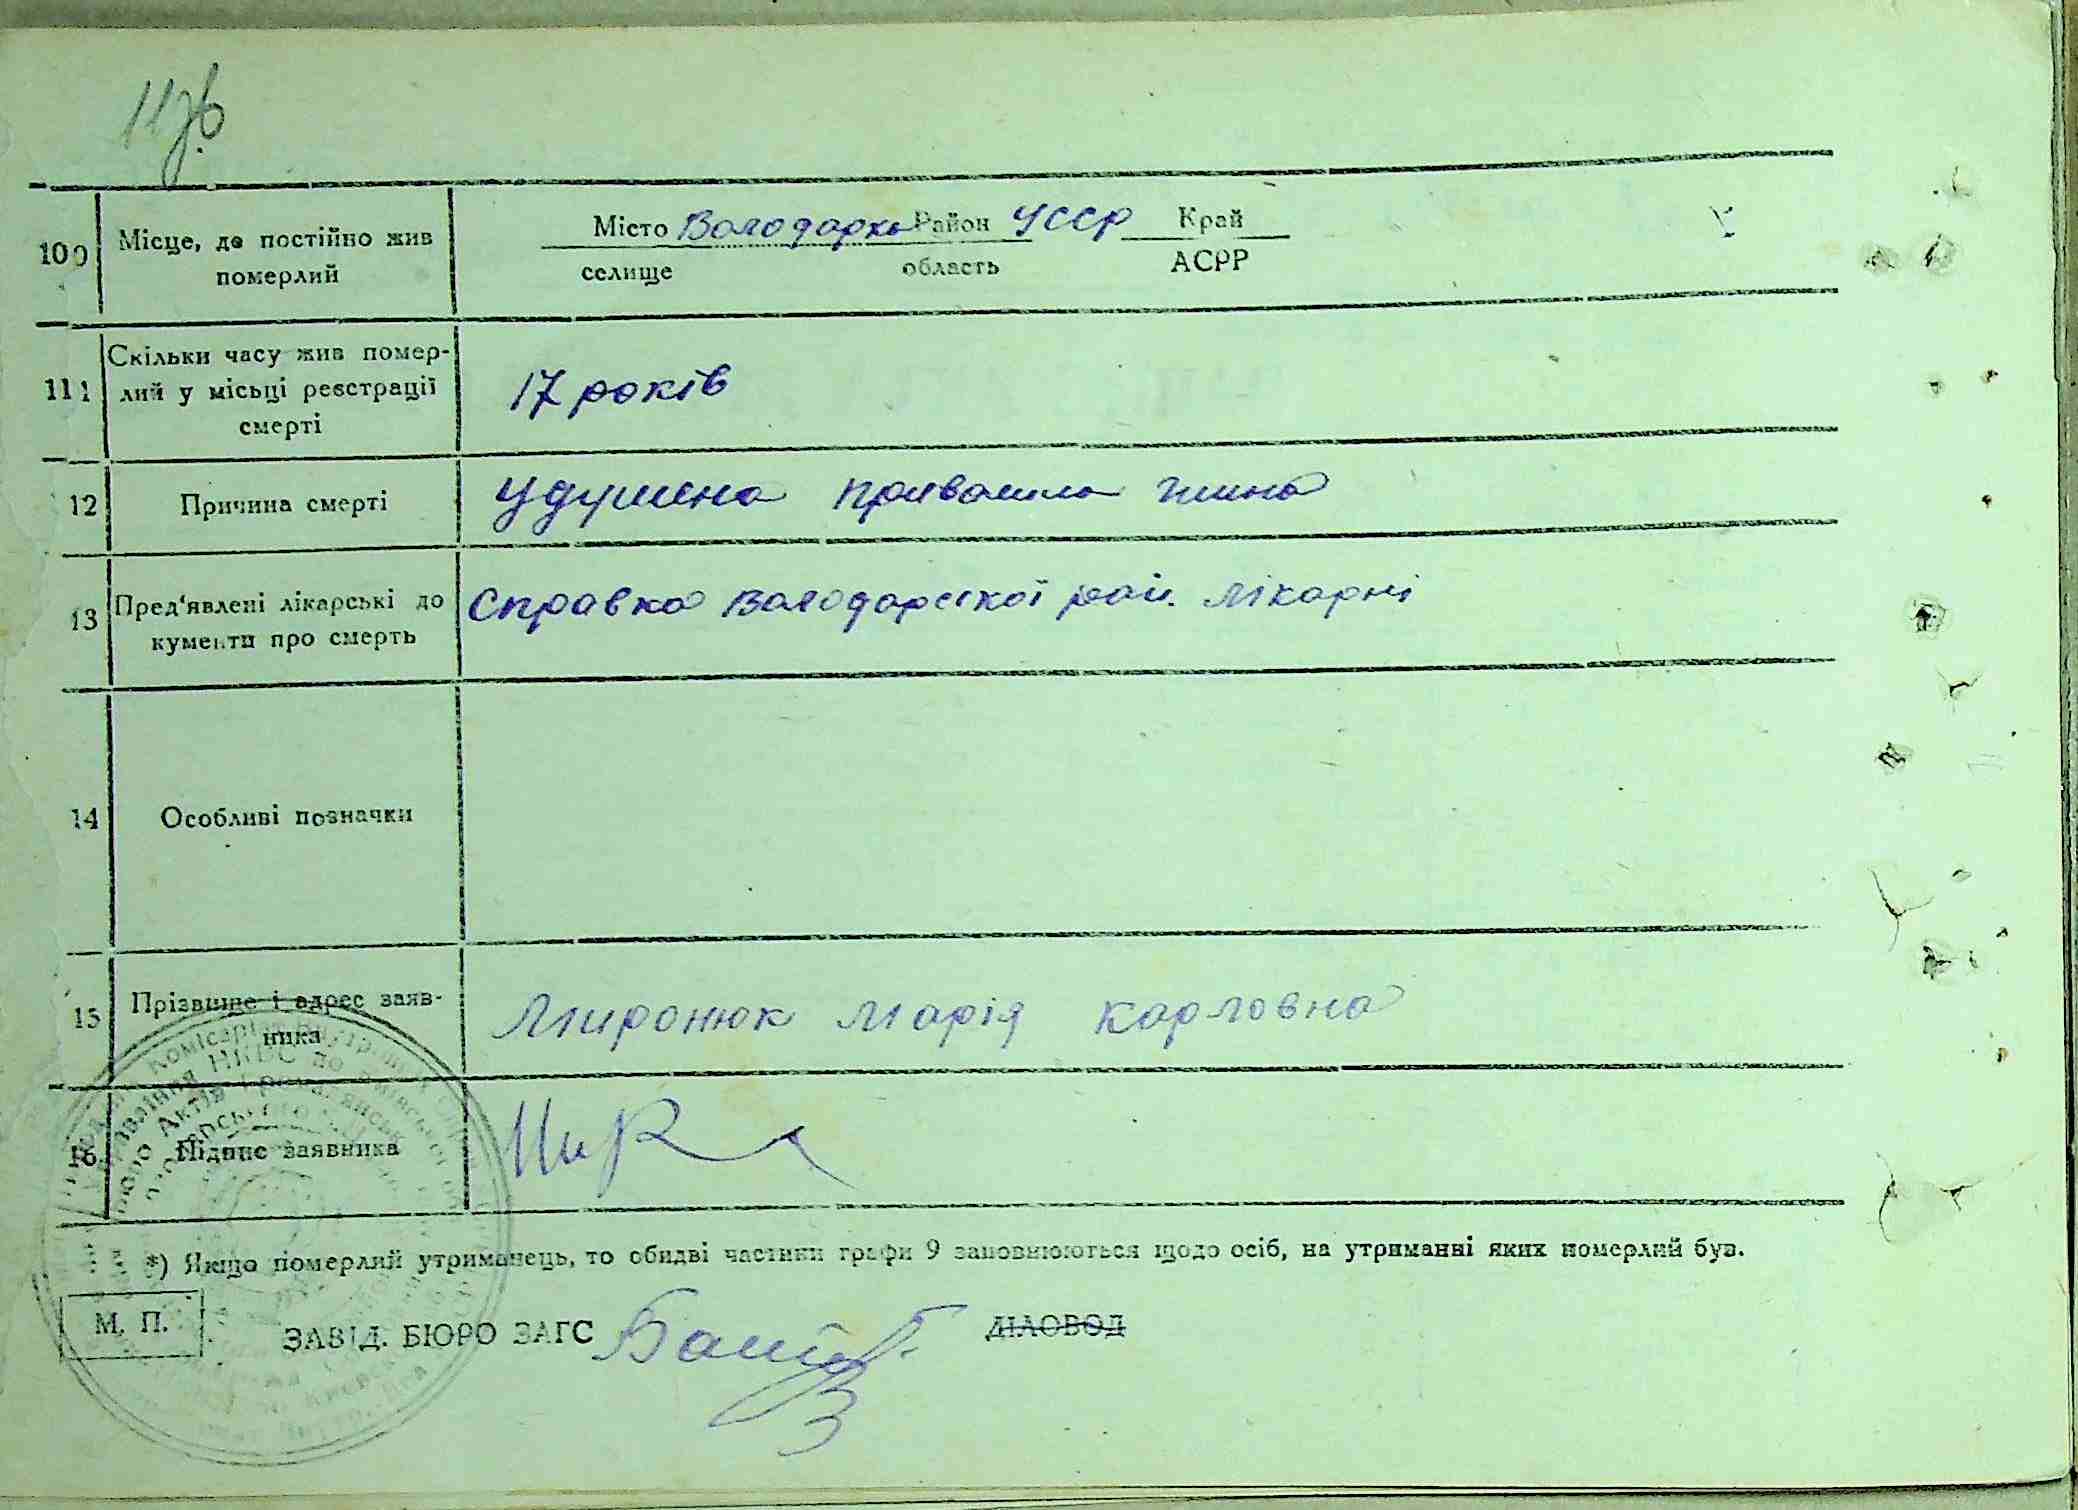 117б
10 Місце, де постійно жив померлий Місто Володарка Район УССР Край
селище область АСРР
11 Скільки часу жив помер-
лий у місьці реєстрації
смерті
17 років
12 Причина смерті
Удушена глина
13 Пред'явлені лікарські до
кументи про смерть
Справка Володарської рай. лікарні
14 Особливі позначки
15 Прізвище і адрес заяв-
ника
Миронюк Марія Карловна
16 Підпис заявника
*) Якщо померлий утриманець, то обидві частини графи 9 заповнюються щодо осіб, на утриманні яких померлий був.
М. П.
ЗАВІД. БЮРО ЗАГС ДІЛОВОД